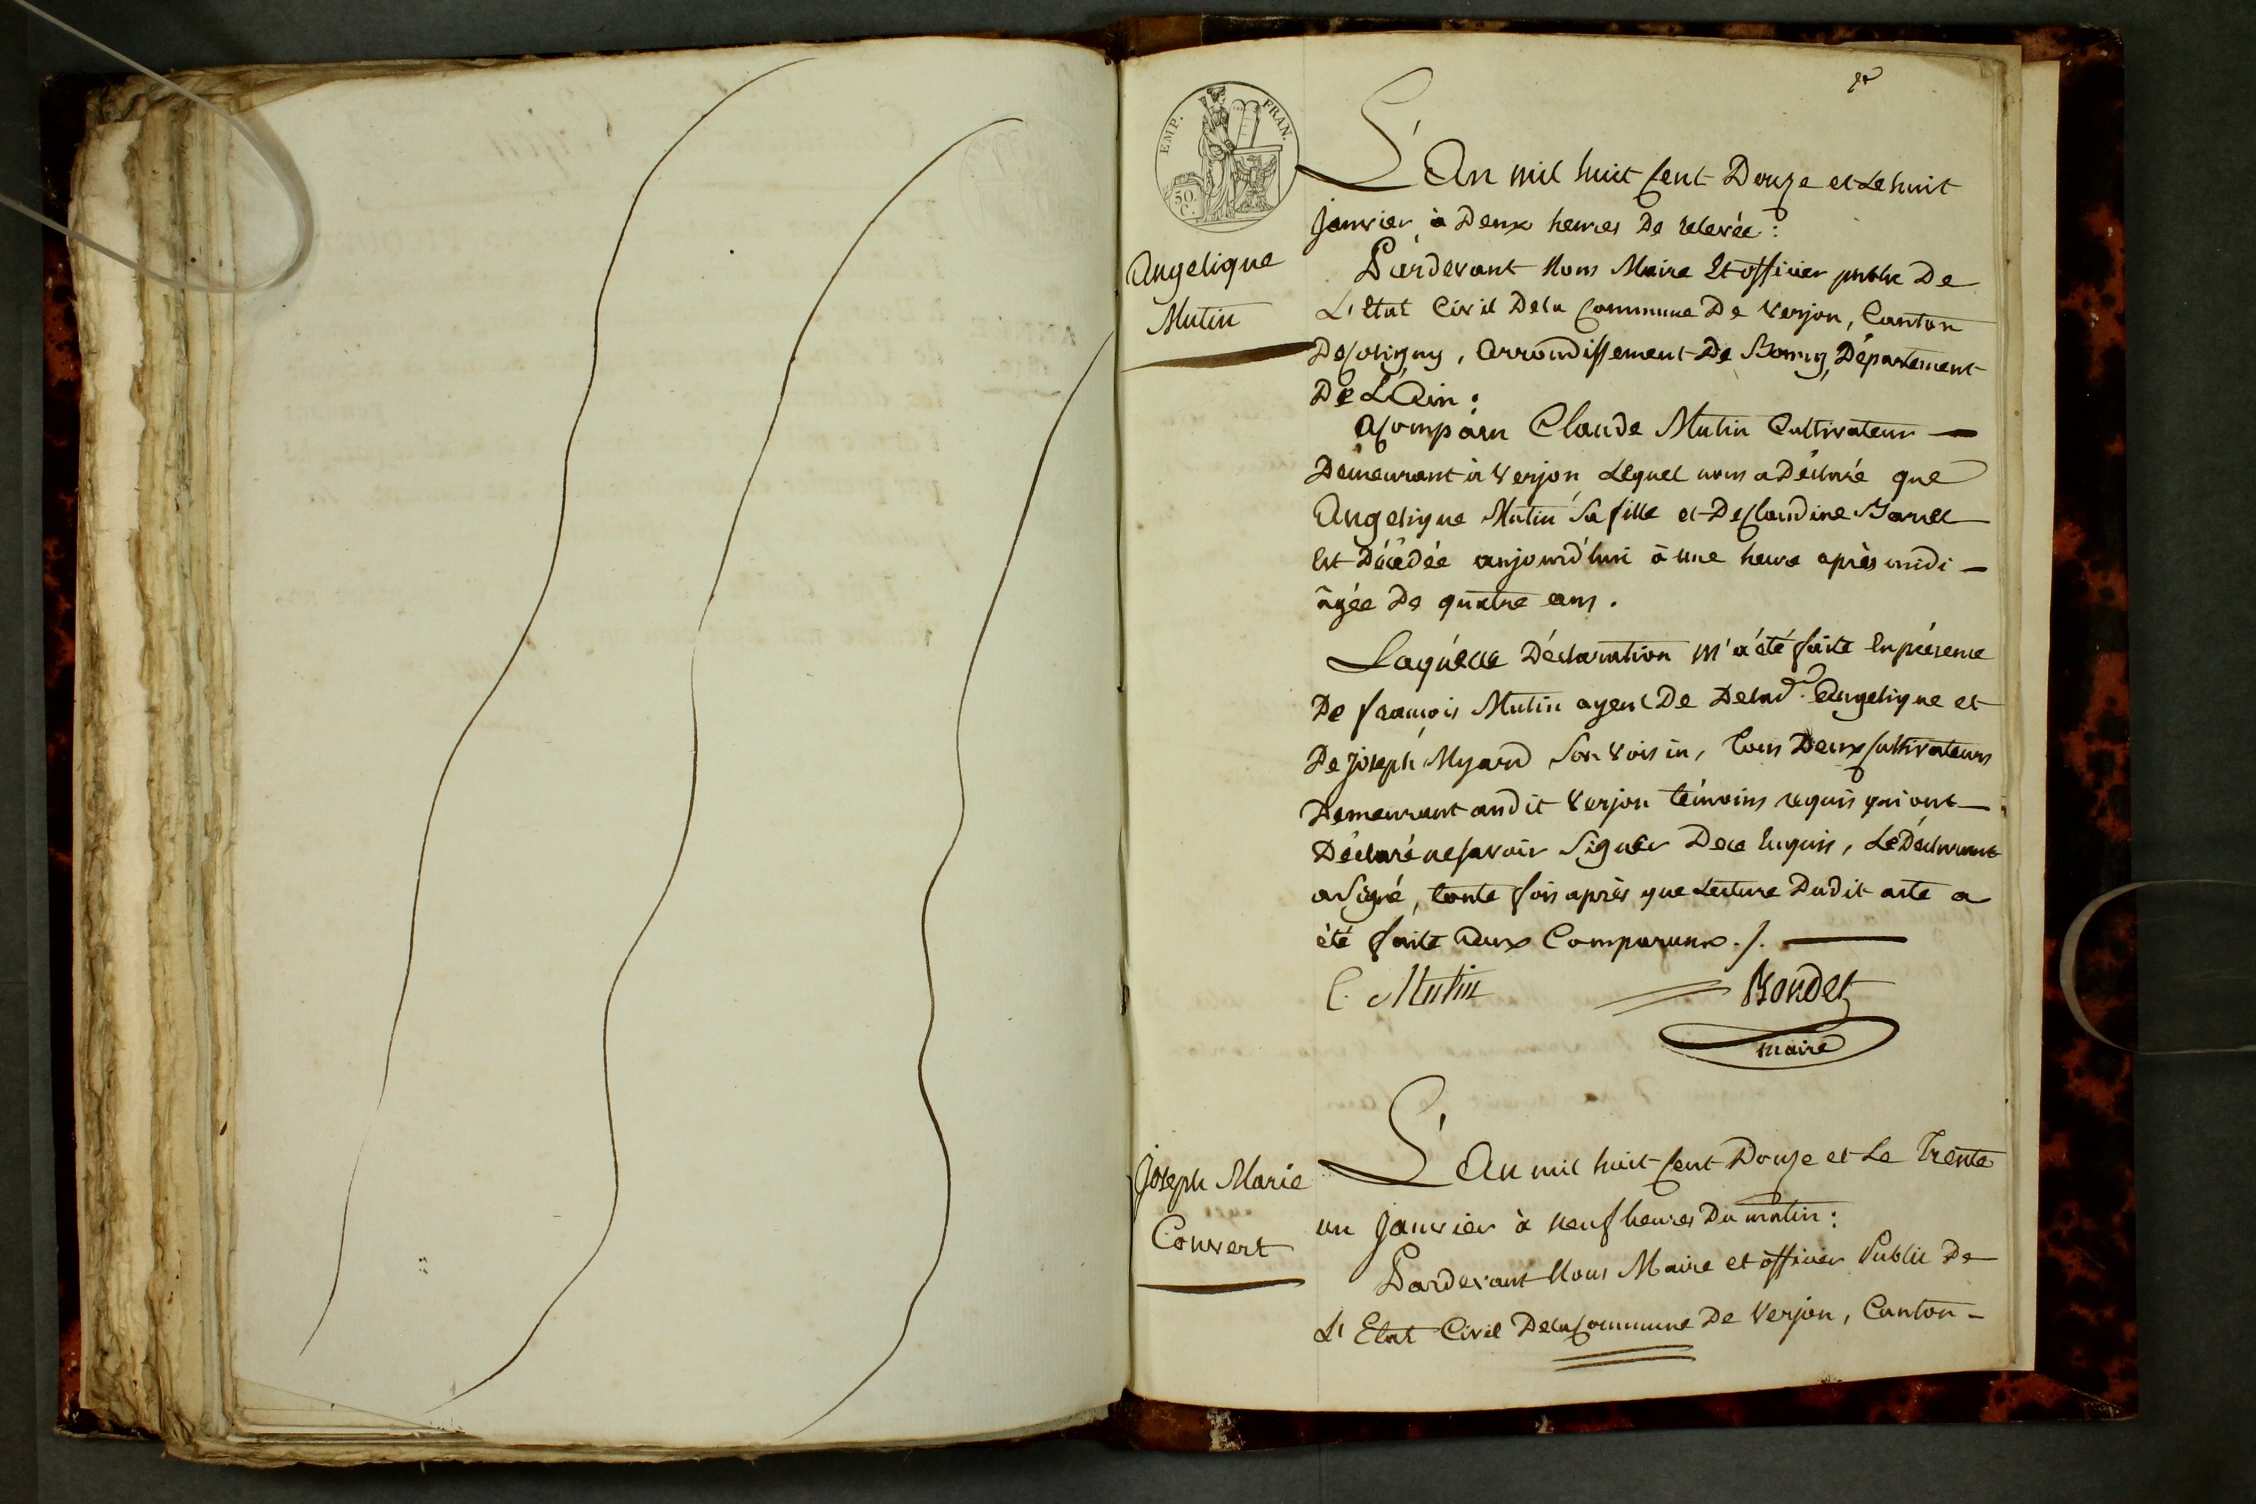 EMP. FRAN.
50.
C.
Angelique
Mutin
L'An mil huit Cent Douze et Le huit
Janvier à Deux heures De relevée :
Pardevant Nous Maire Et officier public De
L'Etat Civil De la Commune De Verjon, Canton
De Coligny, Arrondissement De Bourg, Département
De L'Ain :
A Comparu Claude Mutin Cultivateur
Demeurant à Verjon, Lequel nous a Déclaré que
Angelique Mutin Sa fille et De Claudine
Est Décédée aujourd'hui à une heure après midi
âgée De quatre ans.
Laquelle Déclaration m'a été faite En présence
De françois Mutin ayeul De Delad. Angelique et
De Joseph Myard Son Voisin, Tous Deux Cultivateurs
Demeurant audit Verjon témoins requis qui ont
Déclaré ne savoir Signer De ce Enquis, Le Déclarant
a Signé, toute fois après que Lecture Dudit acte a
été faite aux Comparans ./.
C. Mutin Bondet
maire
Joseph Marie
Convert
L'An mil huit Cent Douze et Le Trente
un Janvier à neuf heures Du matin :
Pardevant Nous Maire et officier Public De
L'Etat Civil De la Commune De Verjon, Canton